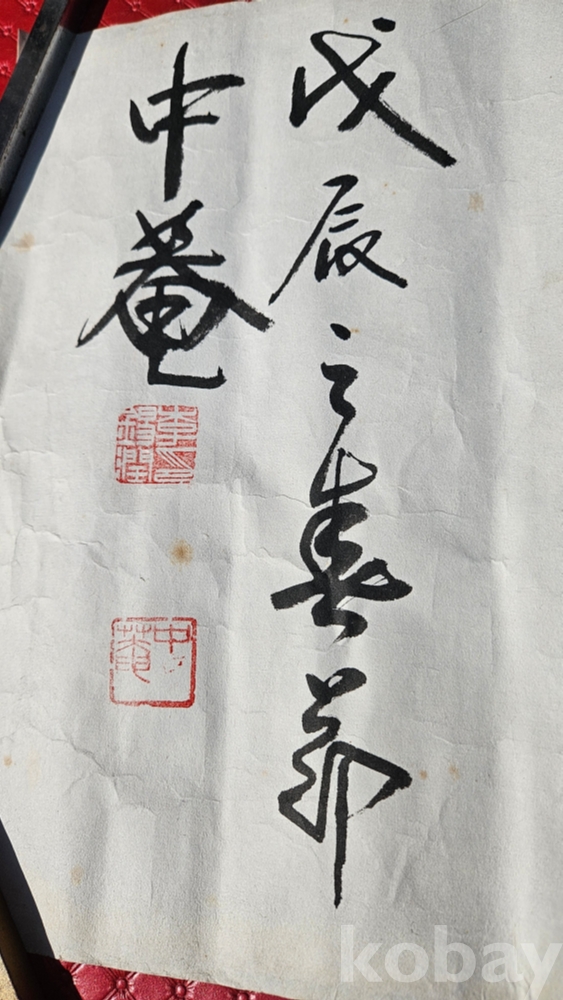 戊辰之春節
中菴
中菴